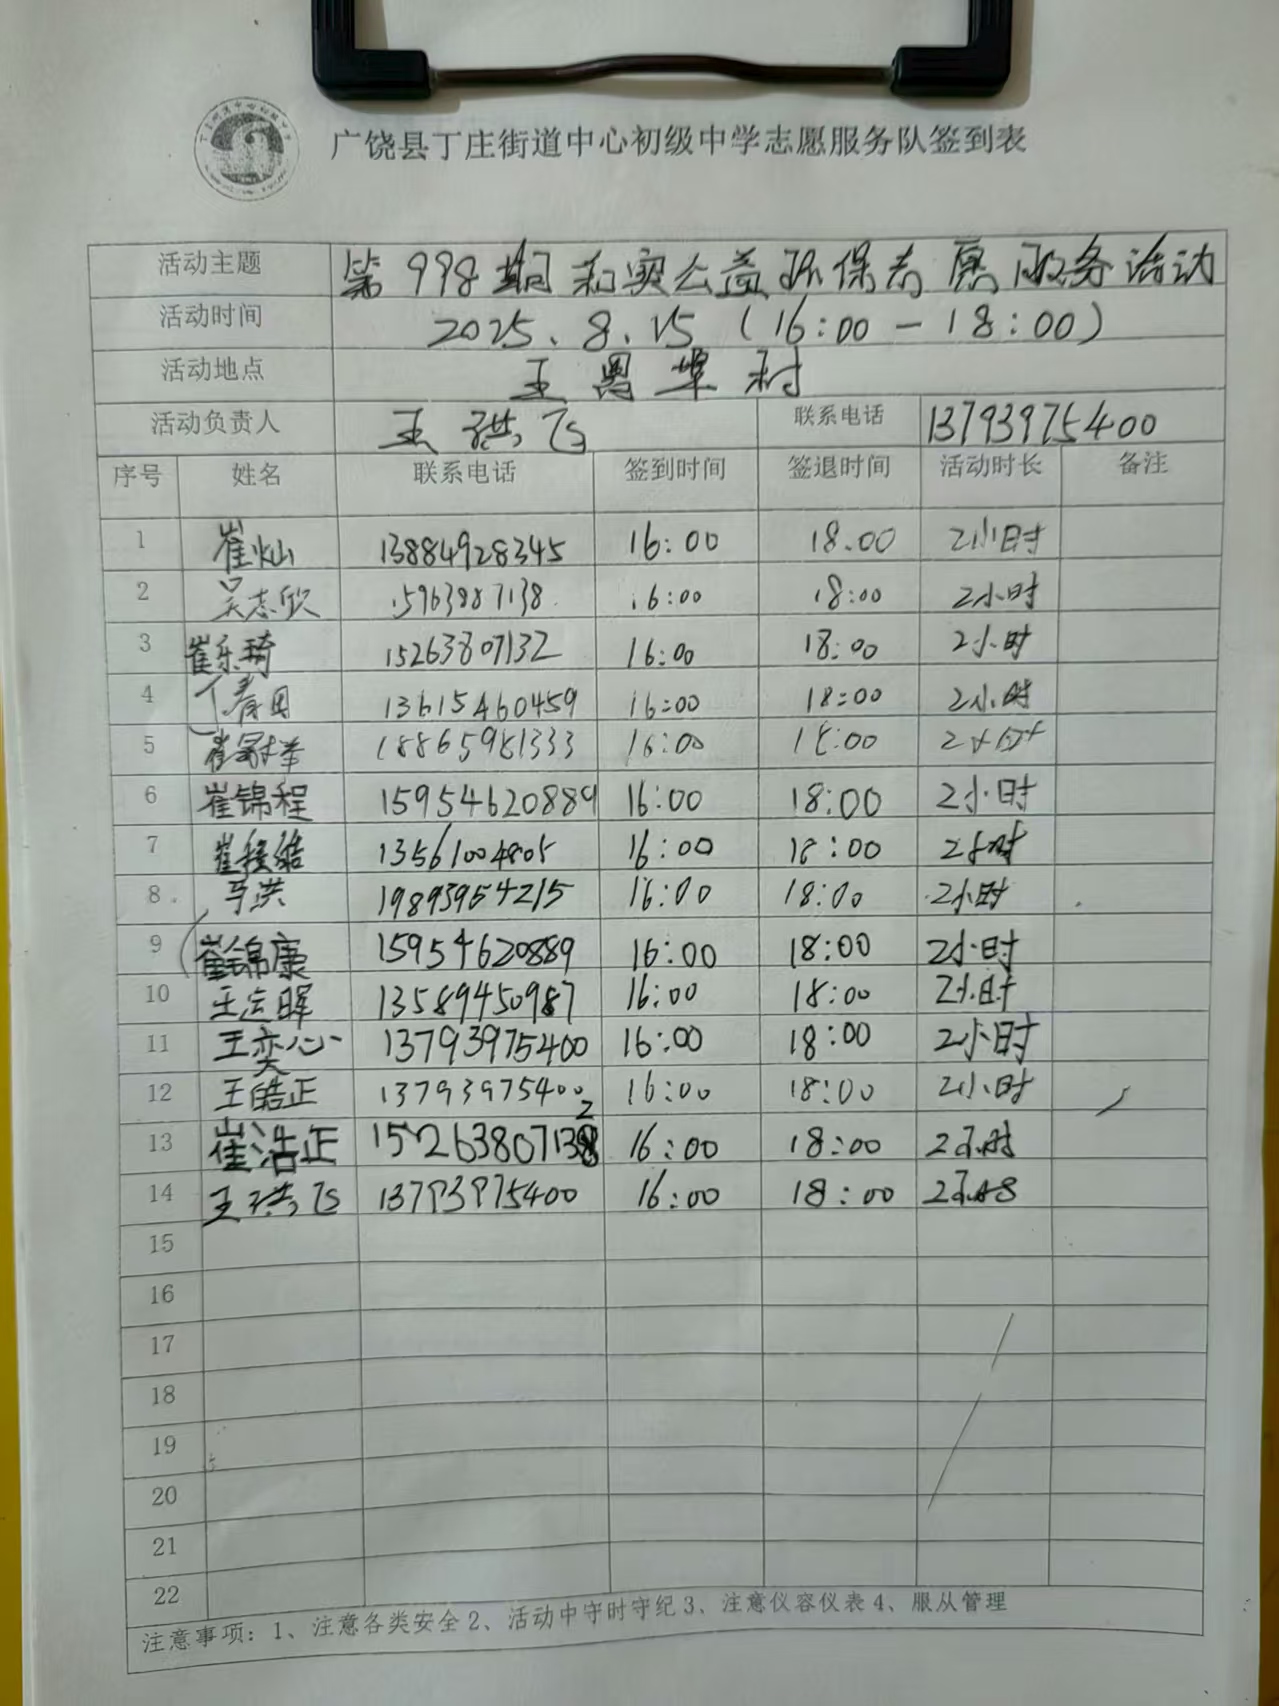 广饶县丁庄街道中心初级中学志愿服务队签到表
活动主题 第998期 和实公益环保志愿服务活动
活动时间 2025.8.15 (16:00-18:00)
活动地点 王 埠村
活动负责人 王洪飞 联系电话 13793975400
序号 姓名 联系电话 签到时间 签退时间 活动时长 备注
1 崔灿 13884928345 16:00 18.00 2小时
2 吴志欣 15963887138 16:00 18:00 2小时
3 崔乐琦 15263807132 16:00 18:00 2小时
4 13615460459 16:00 18:00 2小时
5 18865981333 16:00 18:00 2小时
6 崔锦程 15954620889 16:00 18:00 2小时
7 崔 13561004805 16:00 18:00 2小时
8 马洪 19893954215 16:00 18:00 2小时
9 崔锦康 15954620889 16:00 18:00 2小时
10 王运晖 13589450987 16:00 18:00 2小时
11 王奕心 13793975400 16:00 18:00 2小时
12 王皓正 13793975400 16:00 18:00 2小时
13 崔浩正 15263807132 16:00 18:00 2小时
14 王洪飞 13793975400 16:00 18:00 2小时
15
16
17
18
19
20
21
22
注意事项：1、注意各类安全2、活动中守时守纪3、注意仪容仪表4、服从管理